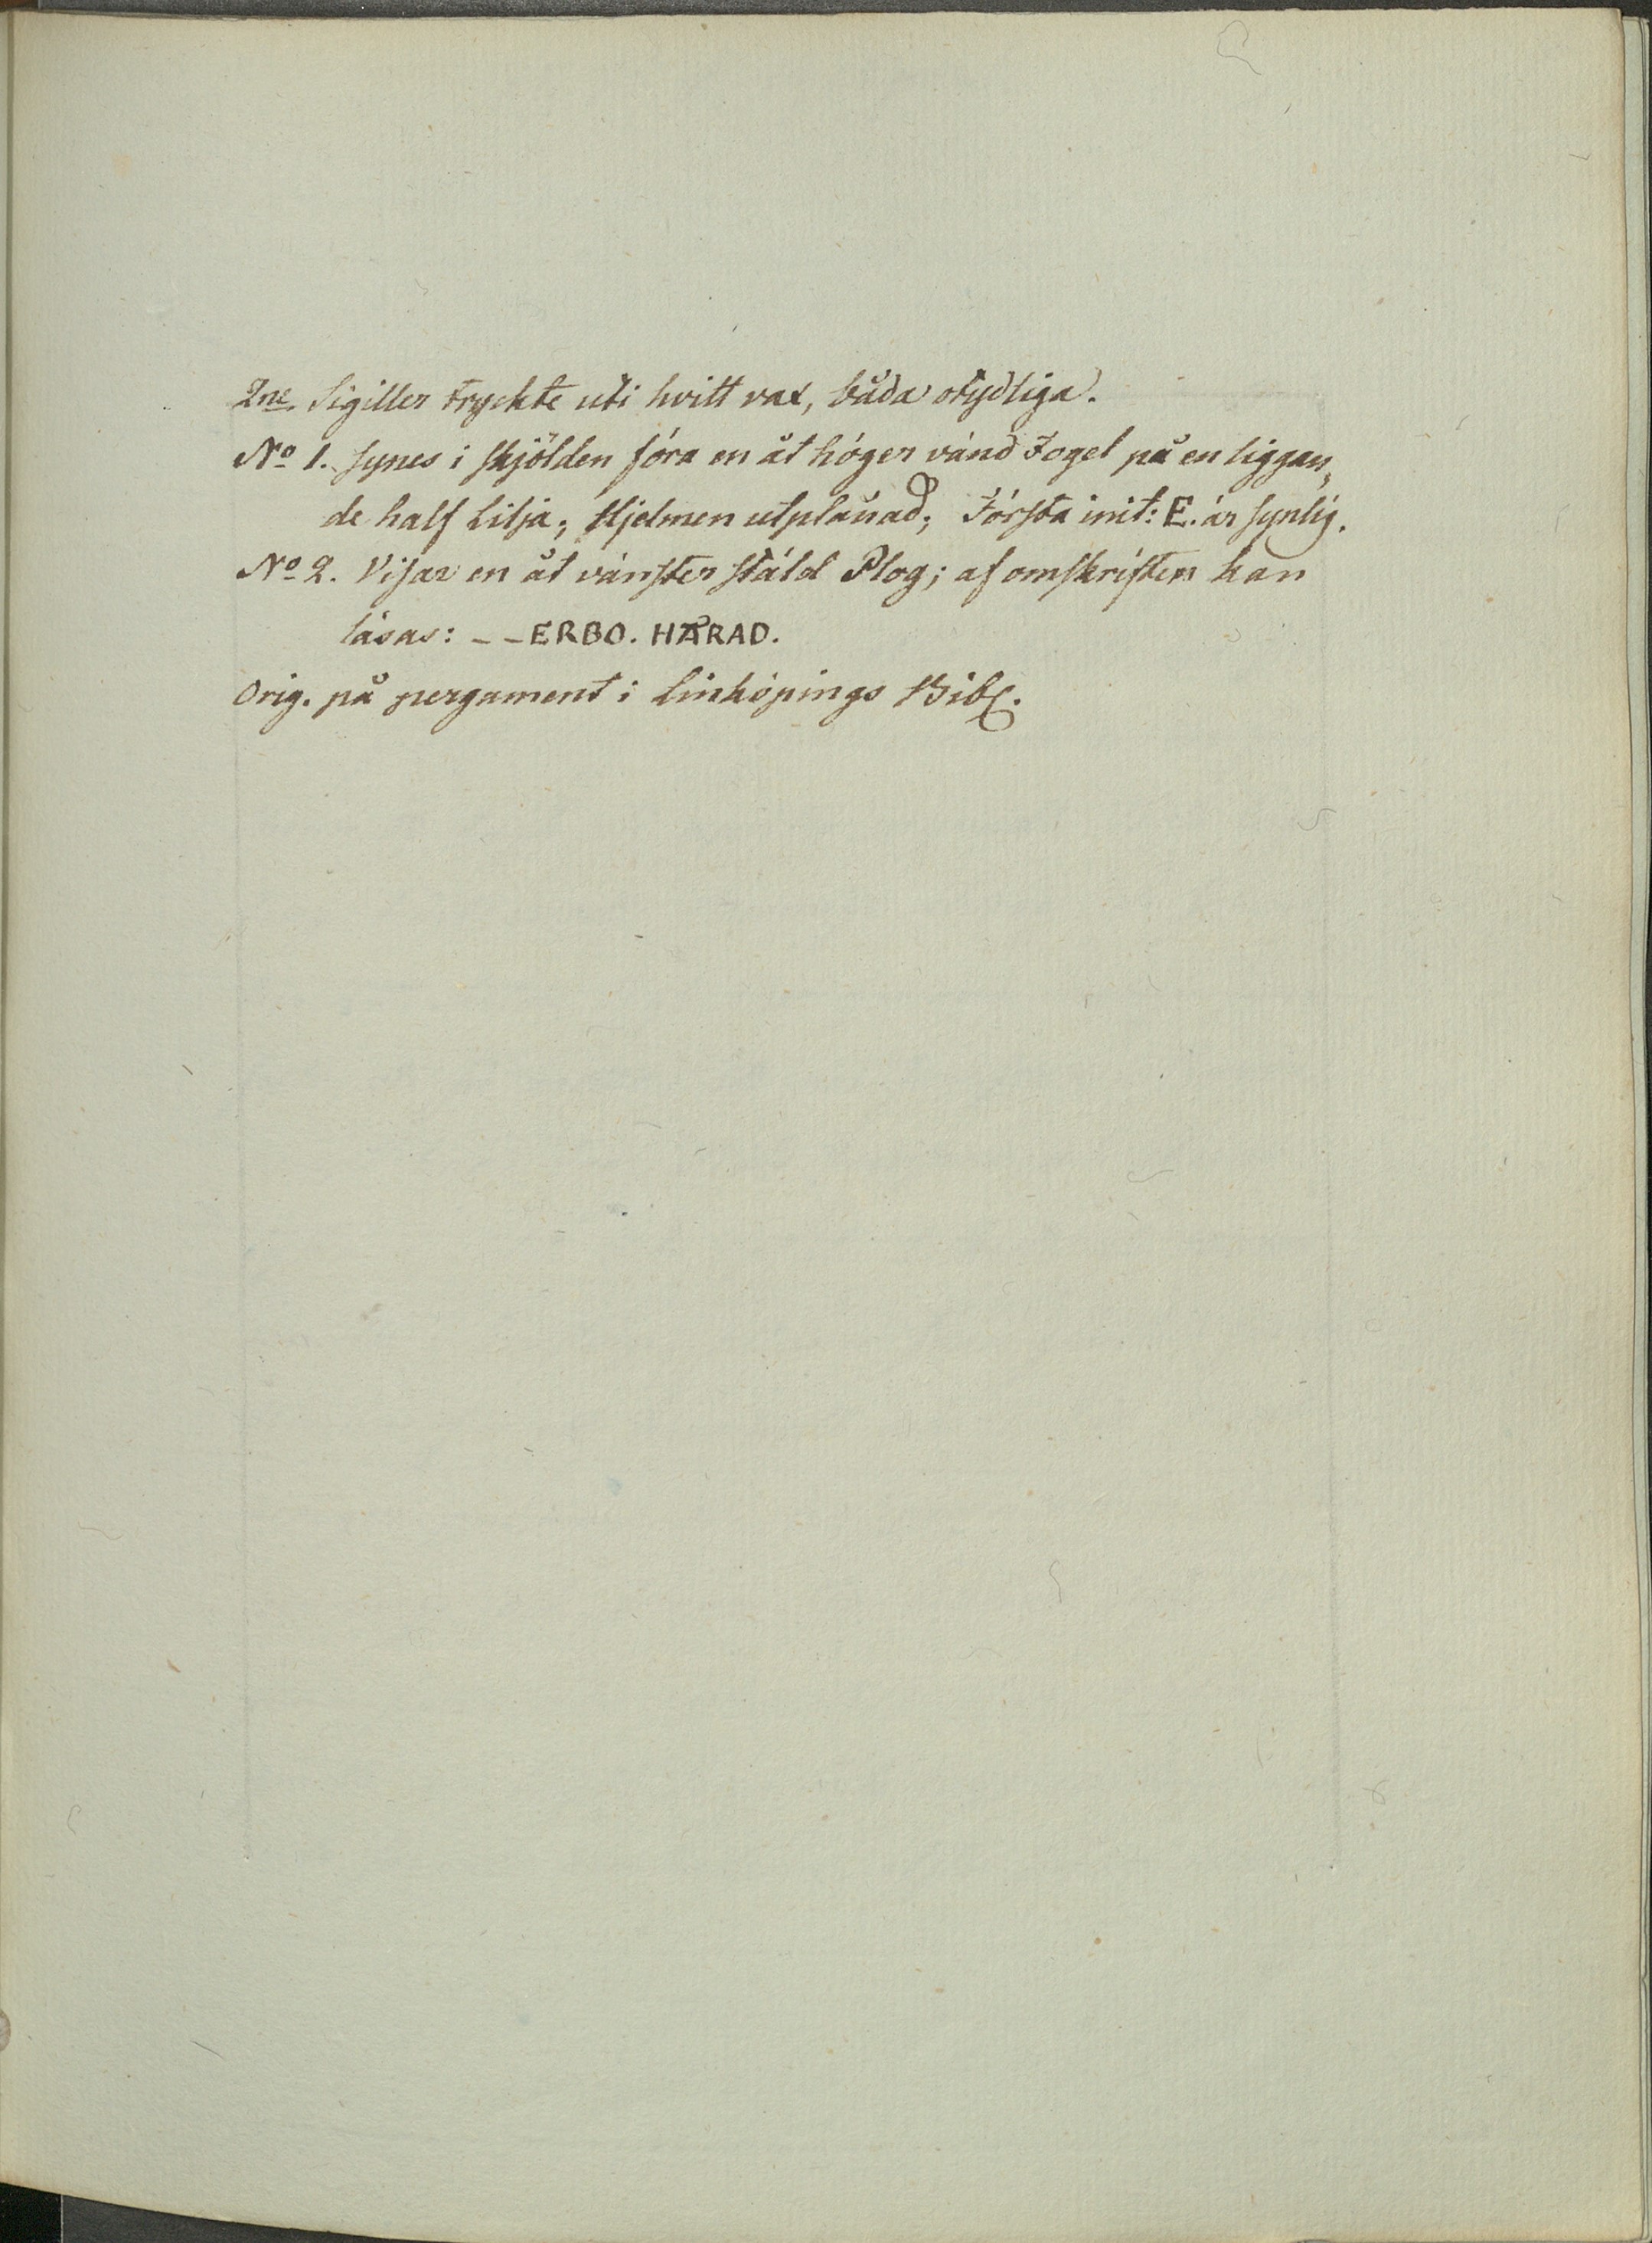 2ne. Sigiller tryckte uti hvitt vax, båda otydliga.
No 1. synes i skjölden föra en åt höger vänd Fogel på en liggan„
de half Lilja; Hjelmen utplånad; Första init: E. är synlig.
No 2. Visar en åt vänster stäld Plog; af omskriften kan
läsas: – – ERBO. HÄRAD.
Orig. på pergament i Linköpings Bibl.